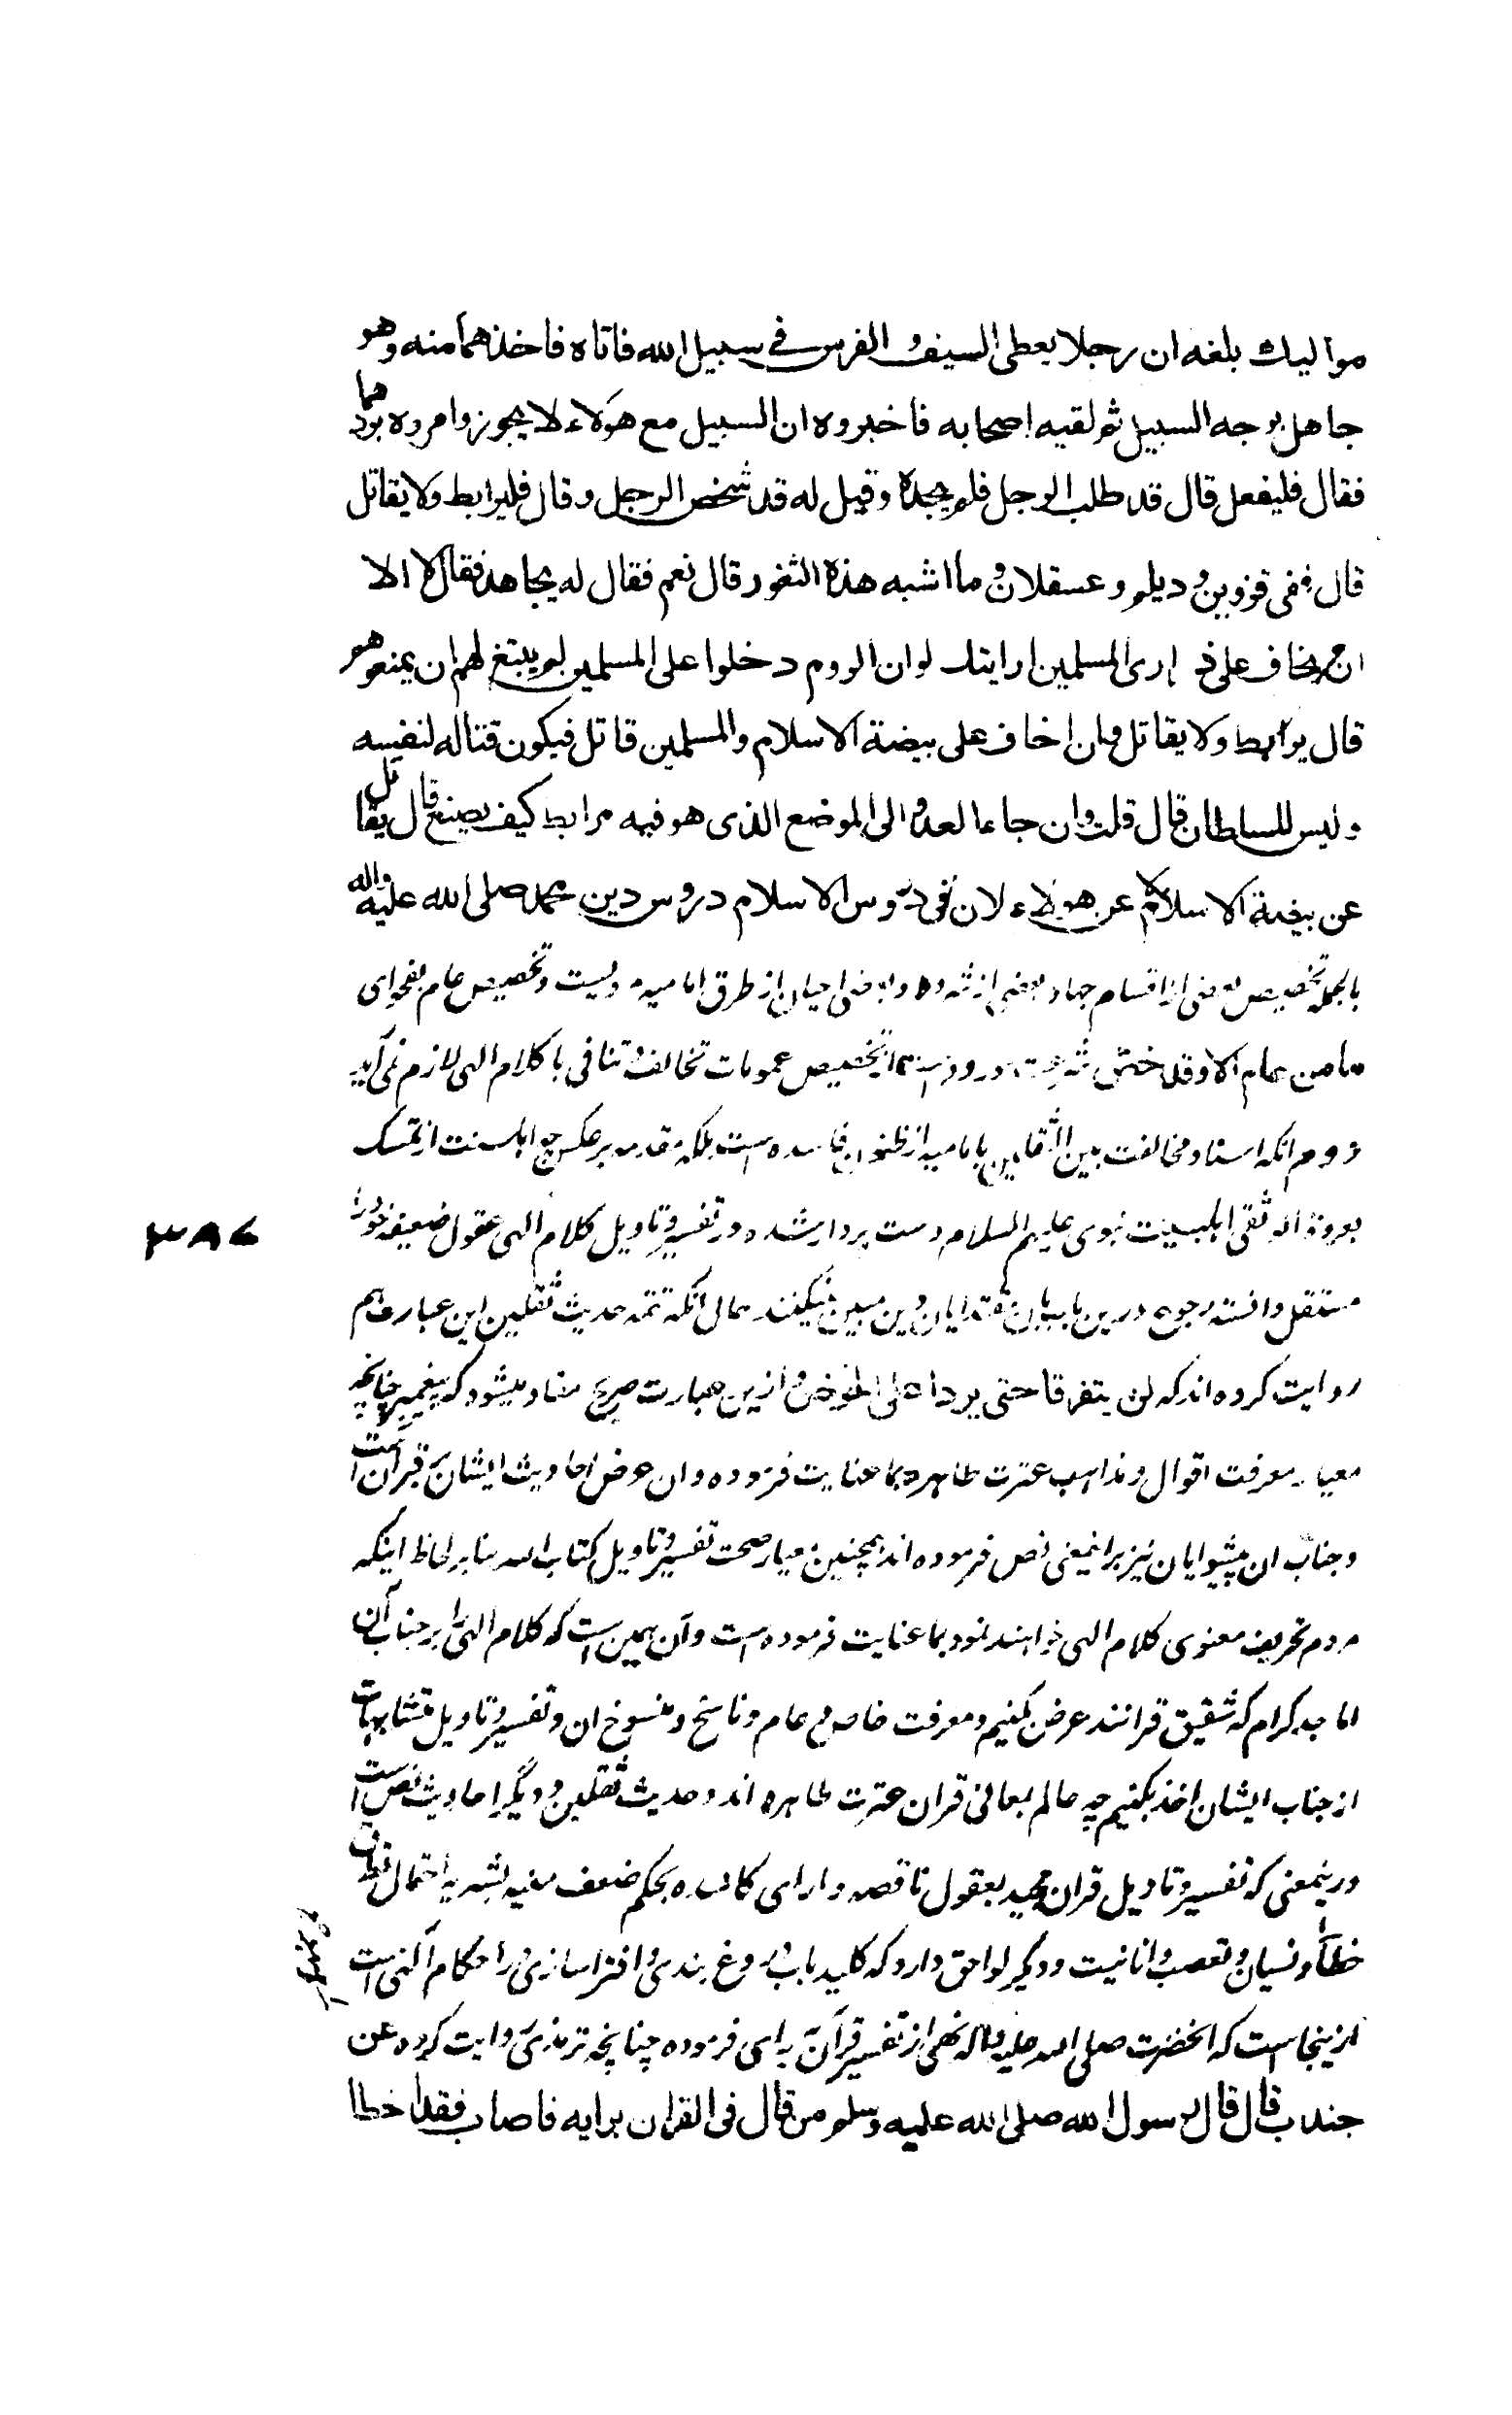 مواليك بلغه ان رجلا يعطى السيف و الفرس فى سبيل الله فاتاه فاخذهما منه وهو
جاهل بوجه السبيل ثم لقيه اصحابه فاخبروه ان السبيل مع هؤلاء لا يجوز وامروه بردهما
فقال فليفعل قال قد طلب الرجل فلم يجده وقيل له قد شخص الرجل وقال فليرابط ولا يقاتل
قال ففى قزوين و ديلم و عسقلان و ما اشبه هذه الثغور قال نعم فقال له يجاهد فقال لا الا
ان يخاف على ذرارى المسلمين ارايتك لو ان الروم دخلوا على المسلمين لم ينبغ لهم ان يمنعوهم
قال يرابط ولا يقاتل وان اخاف على بيضة الاسلام والمسلمين قاتل فيكون قتاله لنفسه
وليس للسلطان قال قلت وان جاء العدو الى الموضع الذى هو فيه مرابط كيف يصنع قال يقاتل
عن بيضة الاسلام لا عن هؤلاء لان فى دروس الاسلام دروس دين محمد صلى الله عليه واله
بالجمله تخصيص بعضى از اقسام جهاد بعضى از شروط و بعضى احيان از طرق اماميه نيست و تخصيص عام بفحواى
ما من عام الا وقد خص شريعت از تخصيص عمومات تخالف و تنافى با كلام الهى لازم نمى آيد
دوم انكه اسناد مخالفت بين الثقلين باماميه از ظنون فاسده است بلكه مقدمه بر عكس چه اهلسنت از تمسك
بعروة الوثقى اهلبيت نبوى عليهم السلام دست بردار شده در تفسير و تاويل كلام الهى عقول ضعيفه خود را
مستقل دانسته رجوع درين باب بان مقتدايان دين مبين نميكنند حال انكه تتمه حديث ثقلين اين عبارت هم
روايت كرده اند كه لن يتفرقا حتى يردا على الحوض و ازين عبارت صريح مفاد ميشود كه پيغمبر چنانچه
معيار معرفت اقوال و مذاهب عترت طاهره بما عنايت فرموده و ان عرض احاديث ايشان بر قرآن است
و جناب ان پيشوايان نيز برين معنى نص فرموده اند همچنين معيار صحت تفسير و تاويل كتاب الله بنا بر لحاظ اينكه
مردم تحريف معنوى كلام الهى خواهند نمود بما عنايت فرموده است و آن همين است كه كلام الهى را بر جناب آن
اماجد كرام كه شقيق قرانند عرض بكنيم و معرفت خاص و عام و ناسخ و منسوخ ان و تفسير و تاويل متشابهات
از جناب ايشان اخذ بكنيم چه عالم بمعانى قران عترت طاهره اند و حديث ثقلين و ديگر احاديث نص است
درينمعنى كه تفسير و تاويل قران مجيد بعقول ناقصه و اراى كاسده بحكم ضعف بنيه بشريه احتمال
خطا و نسيان و تعصب و انانيت و ديگر لواحق دارد كه كليد باب دروغ بندى و افترا سازى در احكام آلهى است
ازينجاست كه انحضرت صلى الله عليه واله نهى از تفسير قرآن براى فرموده چنانچه ترمذى روايت كرده عن
جندب قال قال رسول الله صلى الله عليه وسلم من قال فى القران برايه فاصاب فقد اخطا